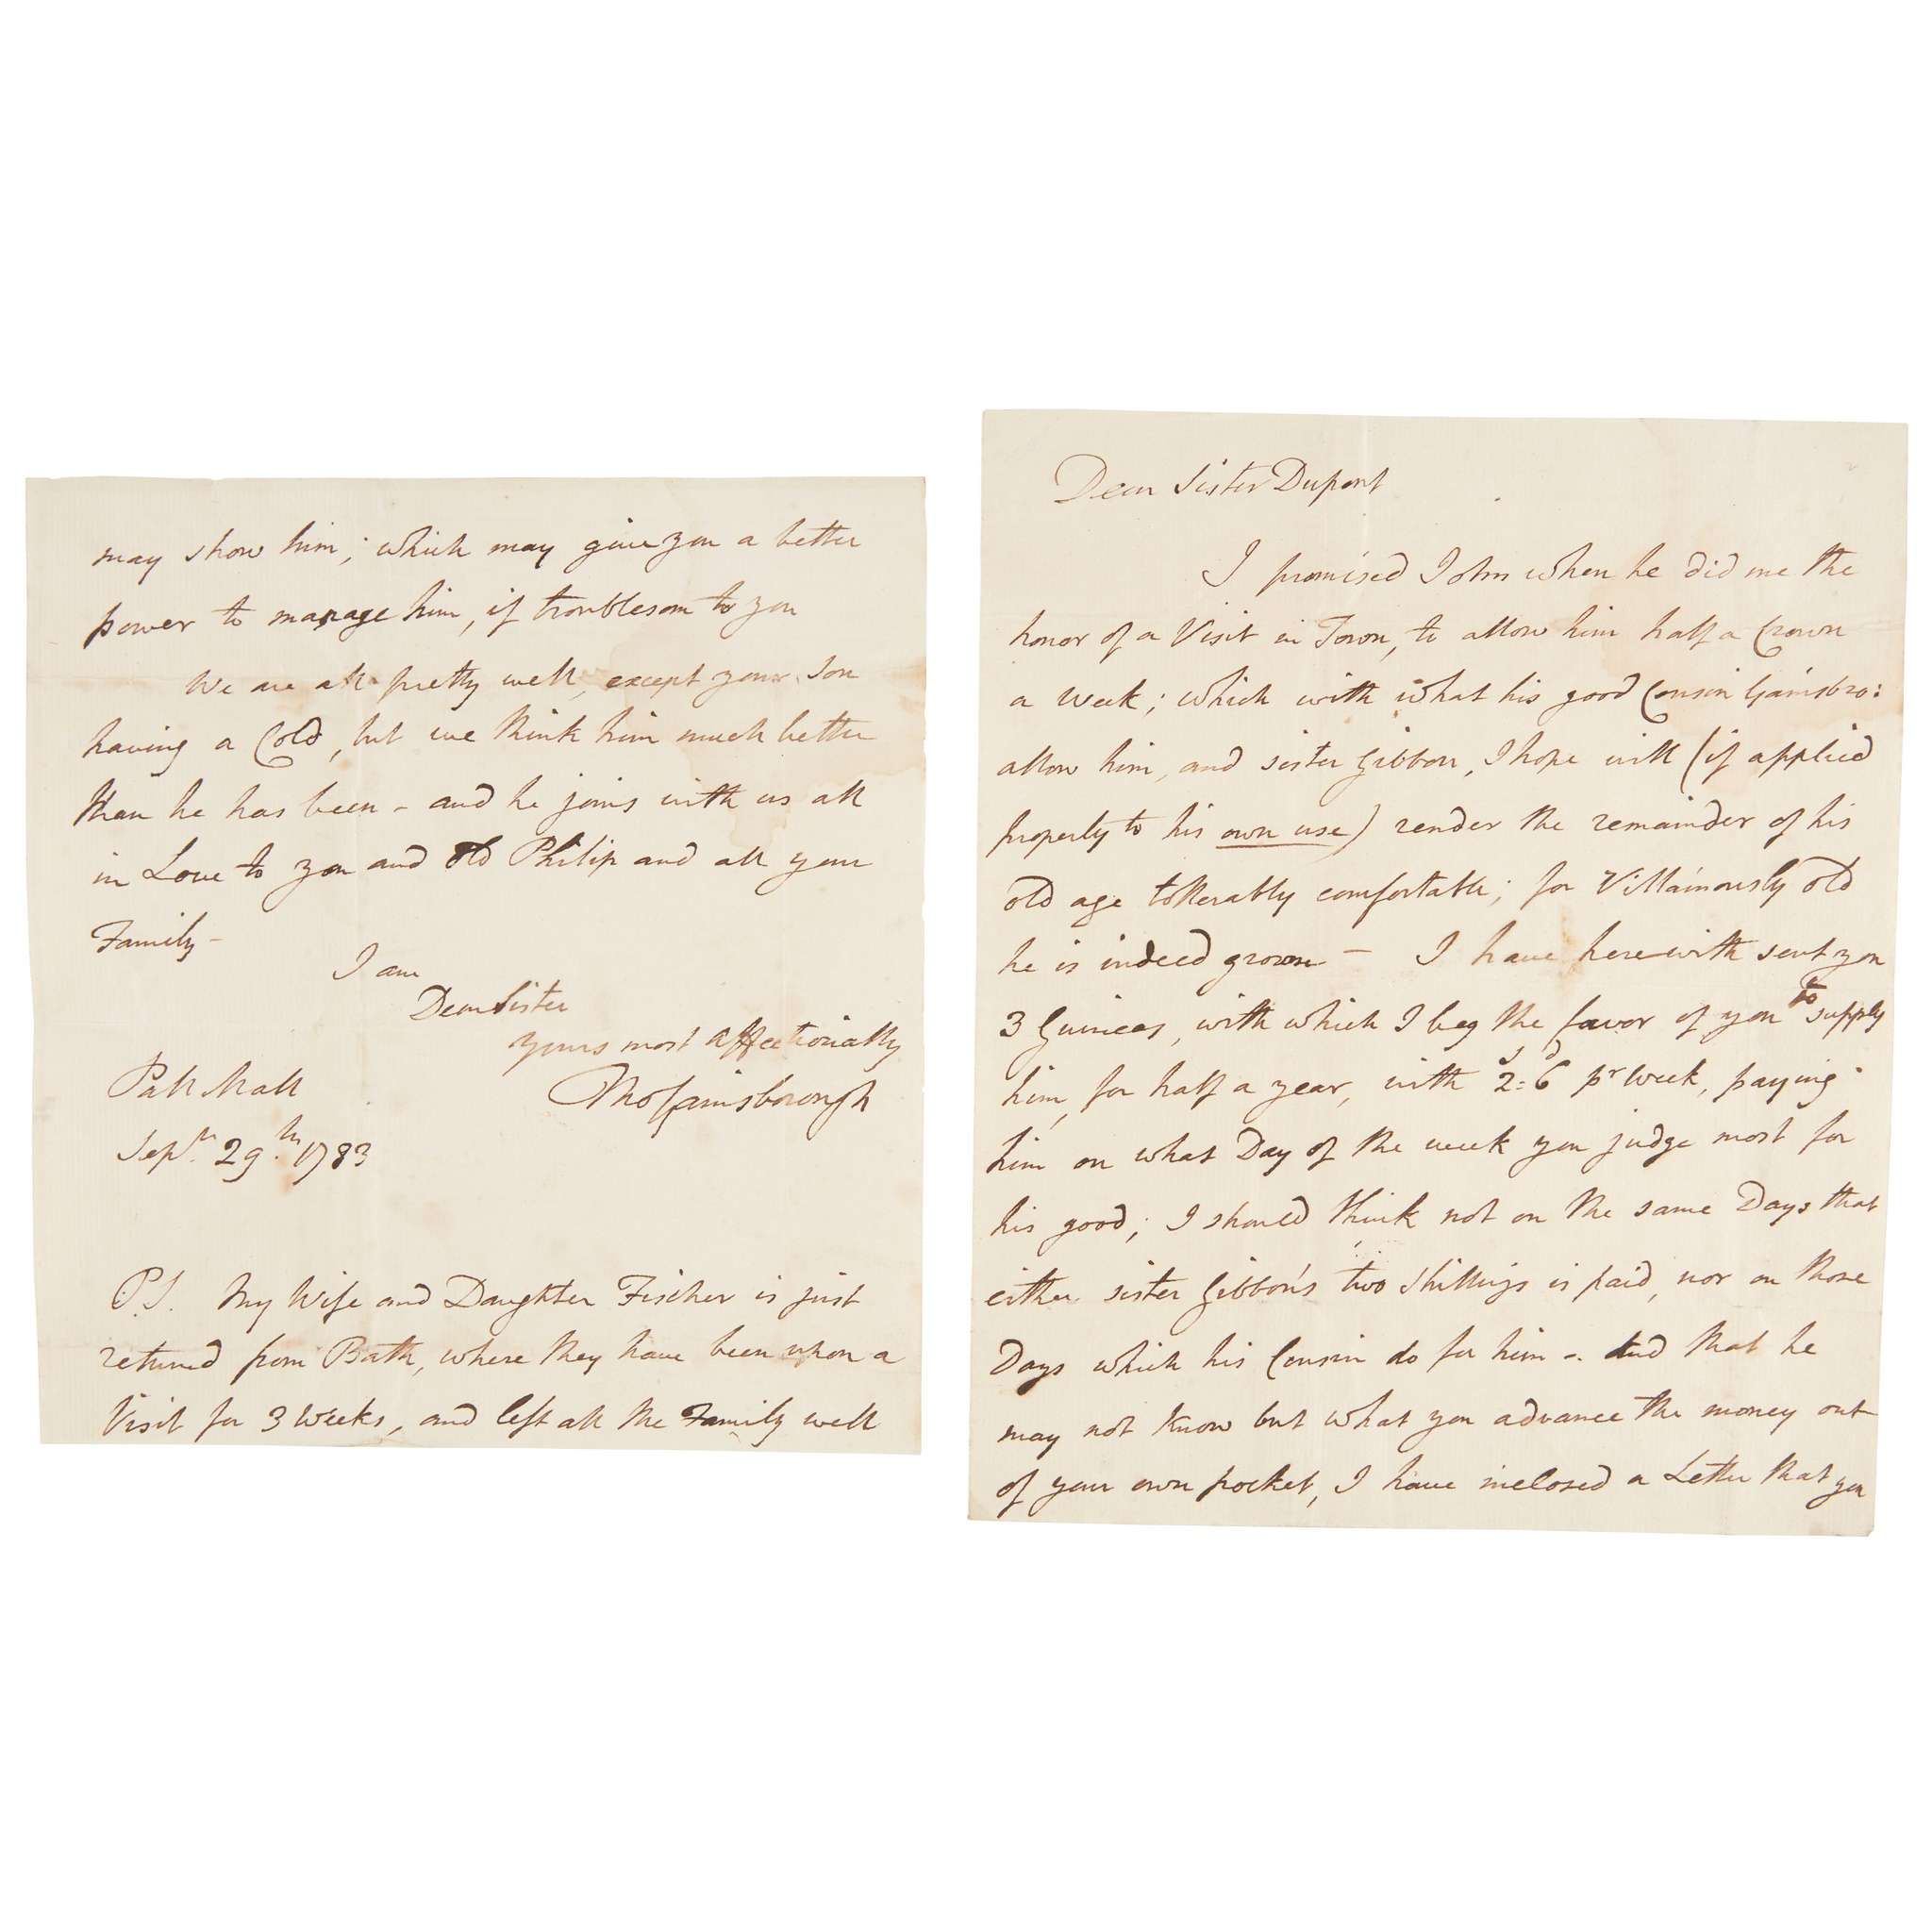 Dear Sister Dupont
I promised John when he did me the
honor of a Visit in Town, to allow him half a Crown
a Week; which with what his good Cousin Gainsbro:
allow him, and sister Gibbon, I hope will (if applied
properly to his own use) render the remainder of his
old age tollerably comfortable; for Villainously old
he is indeed grown — I have herewith sent you
3 Guineas, with which I beg the favor of you to supply
him, for half a year, with 2s=6d pr Week, paying
him on what Day of the week you judge most for
his good; I should think not on the same Days that
either sister Gibbon's two Shillings is paid, nor on those
Days which his Cousin do for him -. And that he
may not know but what you advance the money out
of your own pocket, I have inclosed a Letter that you
may show him; which may give you a better
power to manage him, if troublesom to you
We are all pretty well, except your Son
having a Cold, but we think him much better
than he has been - and he joins with us all
in Love to you and Old Philip and all your
Family -
I am
Dear Sister
Yours most affectionally
Tho Gainsborough
Pall Mall
Sepr. 29th. 1783
P.S. My Wife and Daughter Fischer is just
returned from Bath, where they have been upon a
Visit for 3 Weeks, and left all the Family well